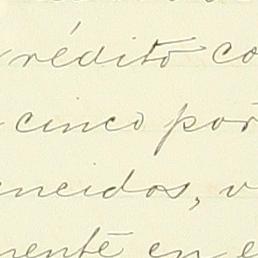 crédito co
cinco por
ncidos, v
mente en e